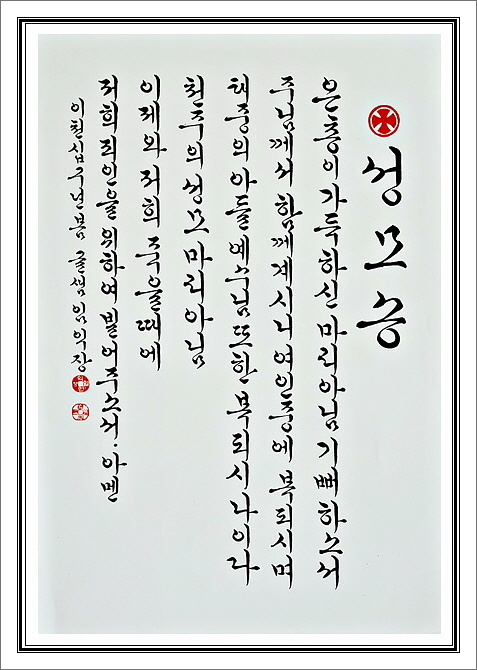 성모송
은총이 가득하신 마리아님 기뻐하소서
주님께서 함께 계시니 여인중에 복되시며
태중의 아들 예수님 또한 복되시나이다
천주의 성모 마리아님
이제와 저희 죽을때에
저희 죄인을 위하여 빌어주소서. 아멘
이천십구년봄 글샘 임익장